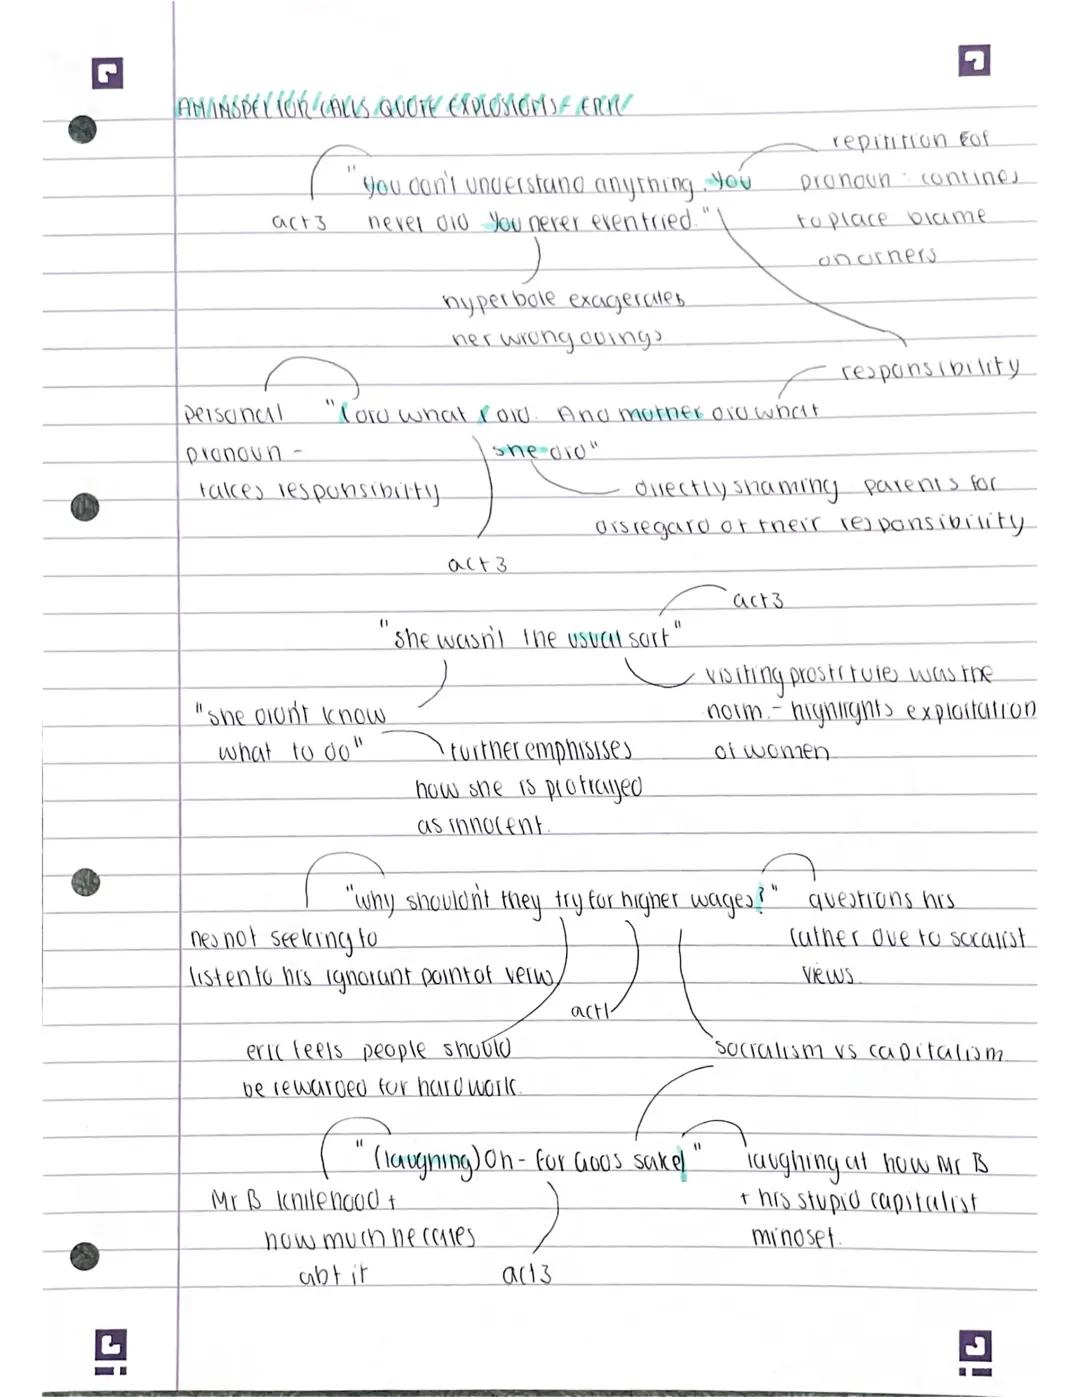 AN INSPECTOR CALLS QUOTE EXPLOSIONS - ERIC
repitition for
"you don't understand anything. You
pronoun: contines
act 3
never did You never even tried."
to place blame
on others
hyperbole exagerates
her wrong doings
responsibility
personal
"I did what I did. And mother did what
pronoun -
she did"
takes responsibility
directly shaming parents for
disregard of their responsibility
act 3
act 3
"she wasn't the usual sort"
visiting prostitutes was the
"she didn't know
norm. - highlights exploitation
what to do"
further emphisises
of women
how she is protrayed
as innocent.
"why shouldn't they try for higher wages?"
questions his
hes not seeking to
father due to socalist
listen to his ignorant point of veiw
views.
act 1
eric feels people should
socialism vs capitalism
be rewarded for hard work.
"(laughing) Oh - for Gods sake!"
laughing at how Mr B
Mr B knitehood +
+ his stupid capitalist
how much he cares
mindset.
abt it
act 3